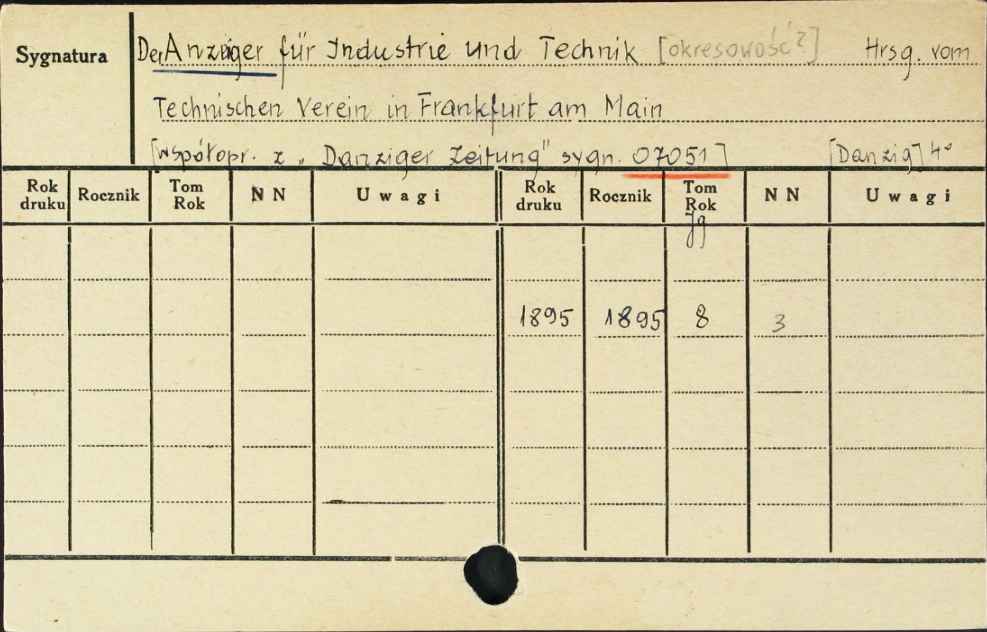 Sygnatura Der Anzeiger für Industrie und Technik [okresowość?] Hrsg. vom
Technischen Verein in Frankfurt am Main
[współopr. z „Danziger Zeitung" sygn. 07051] [Danzig] 4°
Rok druku Rocznik Tom Rok N N Uwagi Rok druku Rocznik Tom Rok N N Uwagi
Jg
1895 1895 8 3